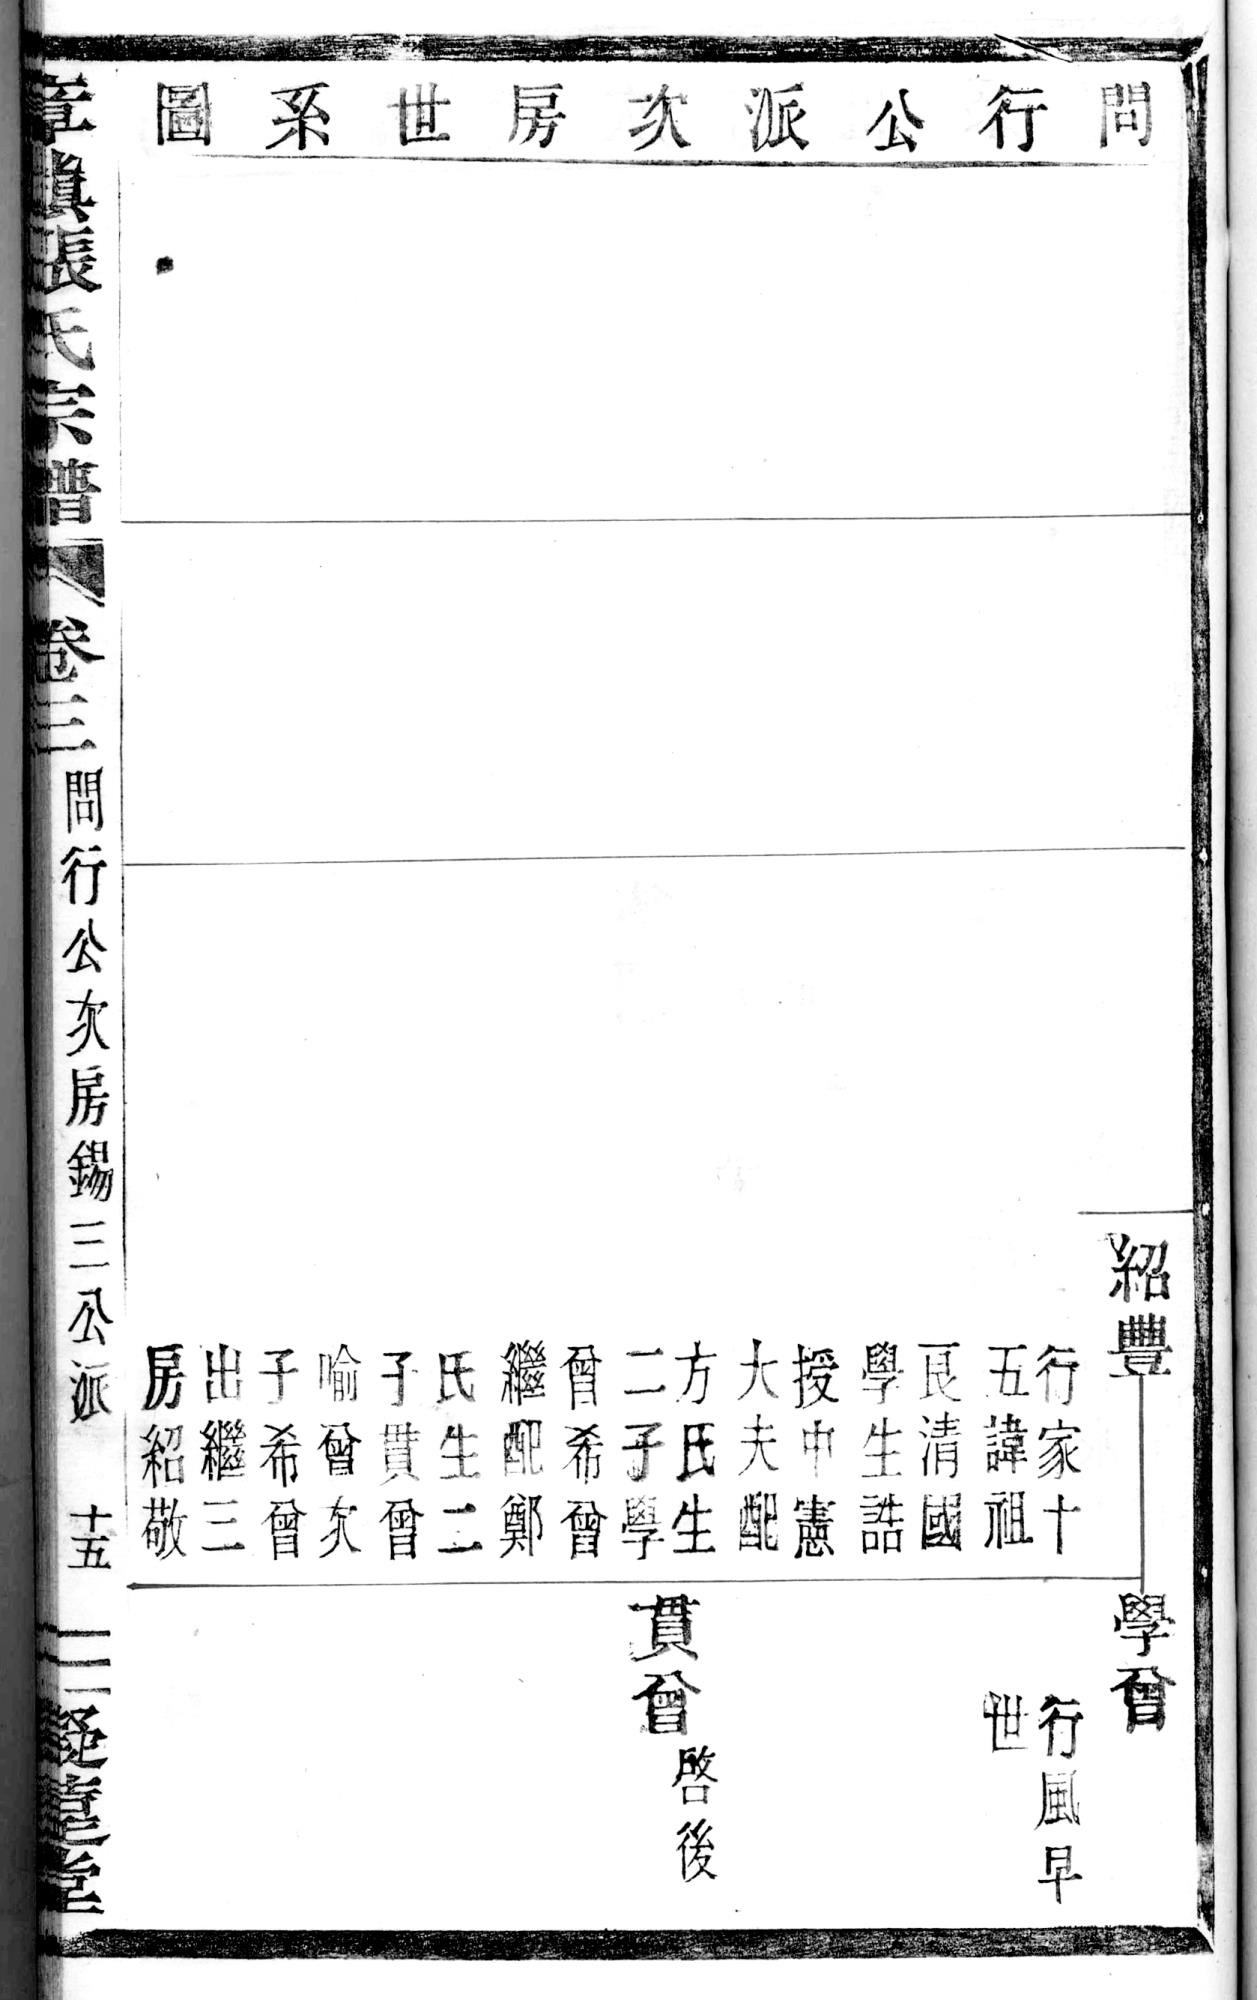 問行公派次房世系圖
紹豐
行家十
五諱祖
良清國
學生誥
授中憲
大夫配
方氏生
二子學
曾希曾
繼配鄭
氏生二
子貫曾
喻曾次
子希曾
出繼三
房紹敬
學曾
行風早
世
貫曾
啓後
章鎮張氏宗譜
卷三
問行公次房錫三公派
十五
堂